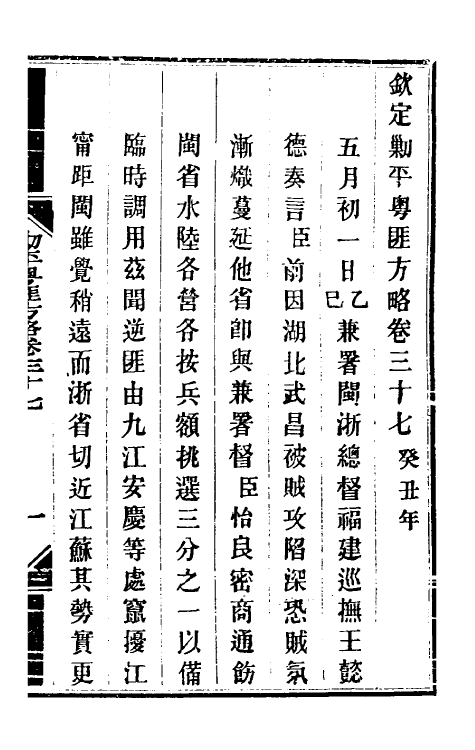 欽定剿平粵匪方略卷三十七 癸丑年
五月初一日乙巳兼署閩浙總督福建巡撫王懿
德奏言臣前因湖北武昌被賊攻陷深恐賊氛
漸熾蔓延他省卽與兼署督臣怡良密商通飭
閩省水陸各營各按兵額挑選三分之一以備
臨時調用茲聞逆匪由九江安慶等處竄擾江
甯距閩雖覺稍遠而浙省切近江蘇其勢實更
剿平粵匪方略卷三十七
一